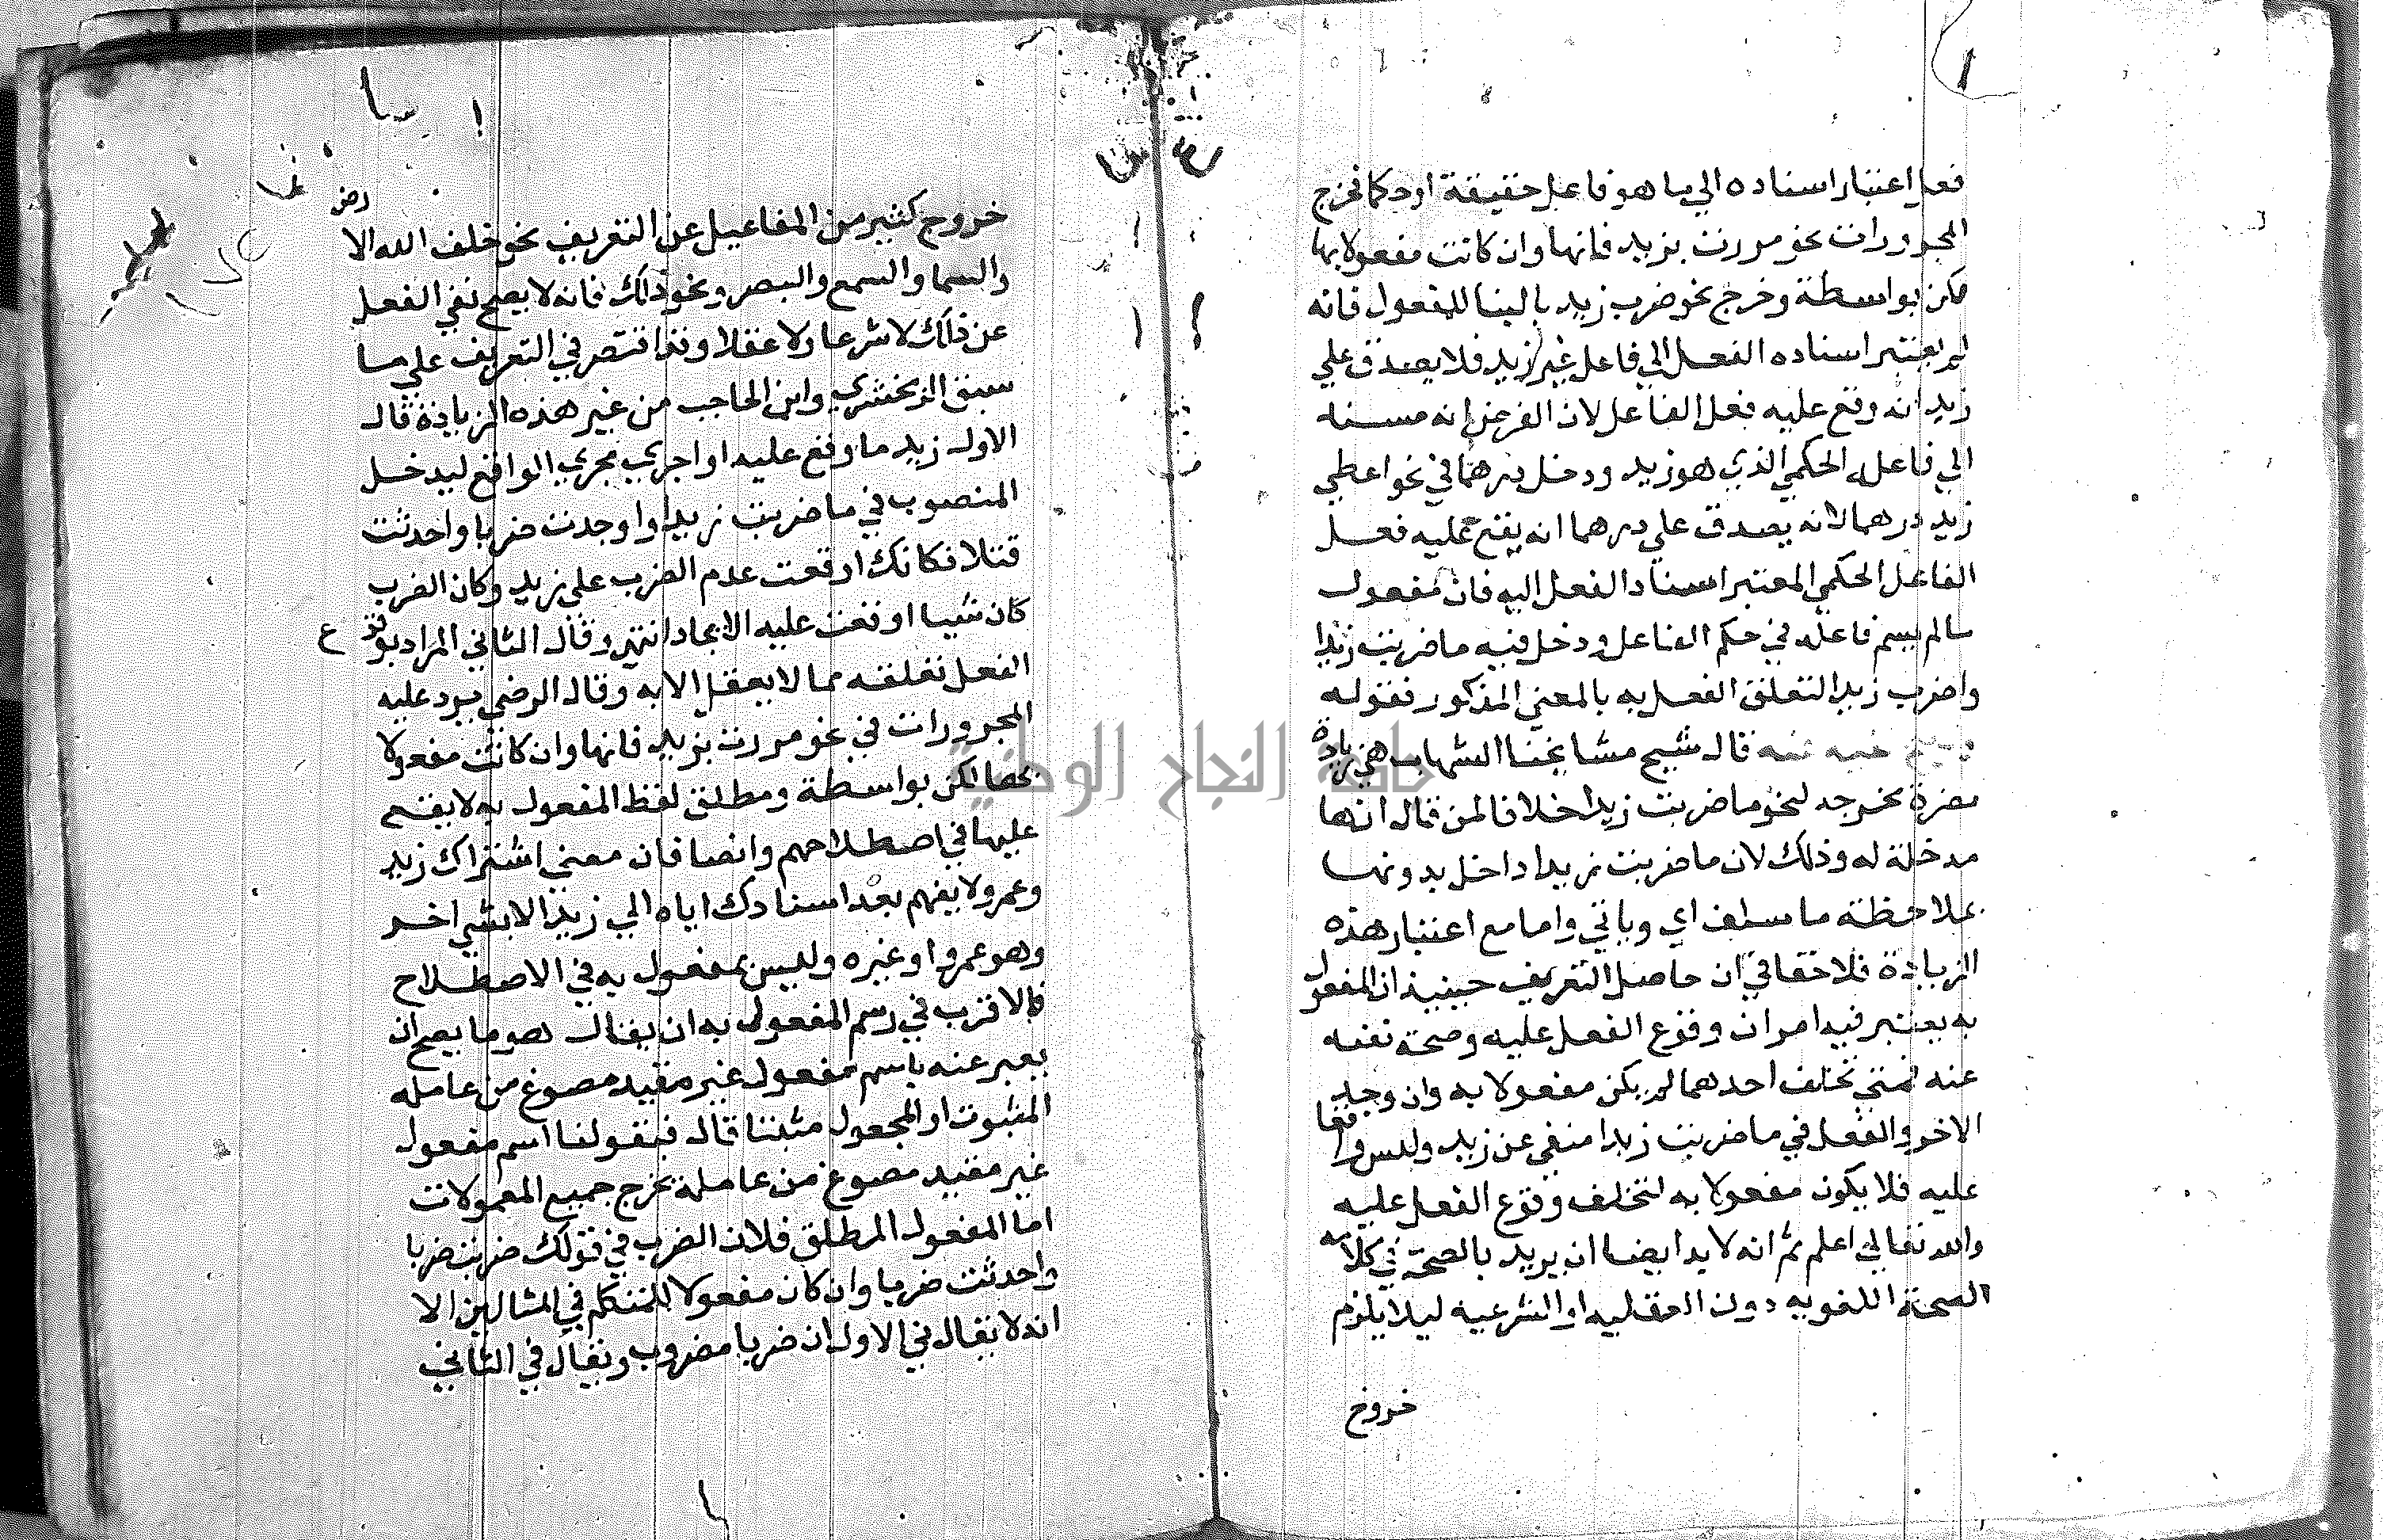 فعل اعتبار اسناده الي ما هو فاعل حقيقة او حكما فخرج
المجرورات نحو مررت بزيد فانها وان كانت مفعولا بها
لكن بواسطة وخرج نحو ضرب زيد بالبنا للمفعول فانه
لم يعتبر اسناده الفعل الي فاعل غير زيد فلا يصدق علي
زيد انه وقع عليه فعل الفاعل لان الفرض انه مسند
الي فاعله الحكمي الذي هو زيد ودخل درهما في نحو اعطي
زيد درهما لانه يصدق علي درهما انه يقع عليه فعل
الفاعل الحكمي المعتبر اسناد الفعل اليه فان مفعول
مالم يسم فاعله في حكم الفاعل ودخل فيه ما ضربت زيدا
واضرب زيدا لتعلق الفعل به بالمعني المذكور فقوله
قال شيخ مشايخنا الشهاب هي زيادة
مضرة نخرجه لنحو ما ضربت زيدا خلافا لمن قال انها
مدخلة له وذلك لان ما ضربت زيدا داخل بدونها
بملاحظة ما سلف اي وياتي واما مع اعتبار هذه
الزيادة فلا خفا في ان حاصل التعريف حينيذ ان المفعول
به يعتبر فيه امران وقوع الفعل عليه وصحة نفيه
عنه فمتي تخلف احدهما لم يكن مفعولا به وان وجد
الاخر والفعل في ما ضربت زيدا منفي عن زيد وليس واقعا
عليه فلا يكون مفعولا به لتخلف وقوع الفعل عليه
والله تعالي اعلم ثم انه لابد ايضا ان يريد بالصحة في كلامه
الصحة اللغويه دون العقليه او الشرعيه ليلا يلزم
خروج
خروج كثير من المفاعيل عن التعريف نحو خلق الله الا
رض
والسما والسمع والبصر ونحو ذلك فانه لا يصح نفي الفعل
عن ذلك لا شرعا ولا عقلا وقد اقتصر في التعريف علي ما
سبق الزمخشري وابن الحاجب من غير هذه الزيادة قال
الاول زيد ما وقع عليه او اجري مجري الواقع ليدخل
المنصوب في ما ضربت زيدا واوجدت ضربا واحدثت
قتلا فكانك اوقعت عدم الضرب علي زيد وكان الضرب
كان شيا اوقعت عليه الايجاد انتهي وقال الثاني المراد بوقوع
الفعل تعلقه بما لا يعقل الا به وقال الرضي يرد عليه
المجرورات في نحو مررت بزيد فانها وان كانت مفعولا
بها لكن بواسطة ومطلق لفظ المفعول به لا يقع
عليها في اصطلاحهم وايضا فان معني اشتراك زيد
وعمرو لا يفهم بعد اسنادك اياه الي زيد الا بشي اخر
وهو عمرو او غيره وليس بمفعول به في الاصطلاح
فالاقرب في رسم المفعول به ان يقال هو ما يصح ان
يعبر عنه باسم مفعول غير مقيد مصوغ من عامله
المثبوت او المجعول مثبتا قال فبقولنا اسم مفعول
غير مقيد مصوغ من عامله يخرج جميع المعمولات
اما المفعول المطلق فلان الضرب في قولك ضربت ضربا
واحدثت ضربا وان كان مفعولا للمتكلم في المثالين الا
انه لا يقال في الاول ان ضربا مضروب ويقال في الثاني
جامعة النجاح الوطنية